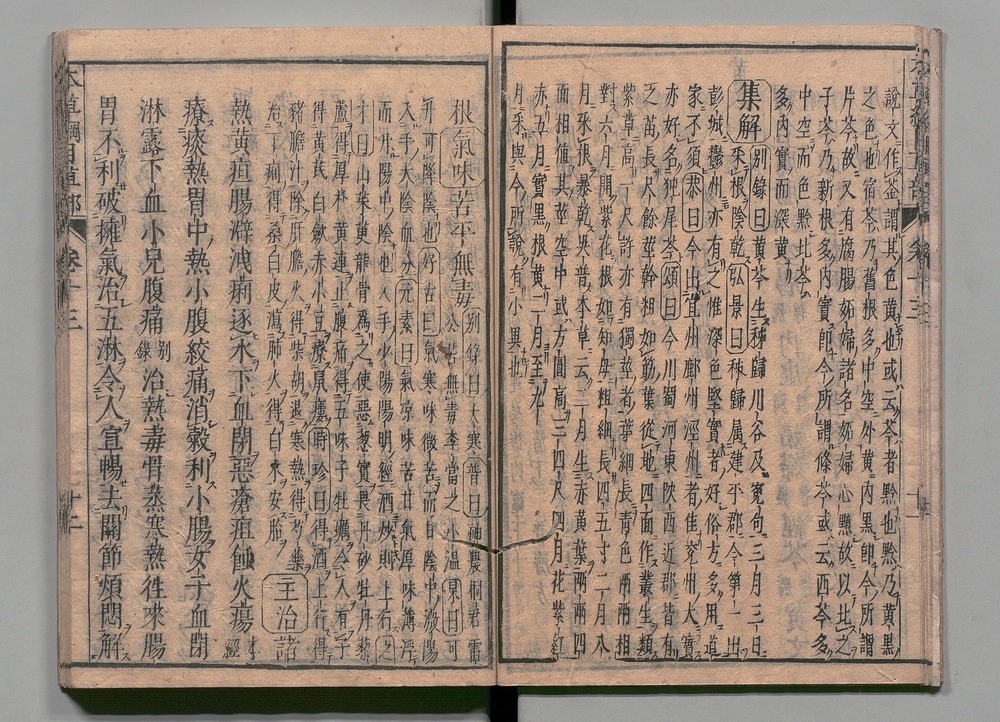 本草綱目草部　卷十三
說文作莶謂其色黄也或云芩者黔也黔乃黄黑
之色也宿芩乃舊根多中空外黄内黑即今所謂
片芩故又有腐腸妬婦諸名妬婦心黯故以比之
子芩乃新根多内實即今所謂條芩或云西芩多
中空而色黔北芩
多内實而深黄
集解 別錄曰黄芩生秭歸川谷及冤句三月三日
采根陰乾弘景曰秭歸属建平郡今第一出
彭城鬱州亦有之惟深色堅實者好俗方多用道
家不須恭曰今出宜州鄜州涇州者佳兖州大實
亦好名㹠尾芩頌曰今川蜀河東陜西近郡皆有
之苗長尺餘莖幹粗如筯葉從地四面作叢生類
紫草高一尺許亦有獨莖者葉細長青色兩兩相
對六月開紫花根如知母粗細長四五寸二月八
月采根暴乾吳普本草云二月生赤黄葉兩兩四
面相值其莖空中或方圓高三四尺四月花紫紅
赤五月實黑根黄二月至九
月采與今所說有小異也
根氣味苦平無毒 別錄曰大寒普曰神農桐君雷
公苦無毒李當之小温杲曰可
升可降陰也好古曰氣寒味微苦而甘陰中微陽
入手太陰血分元素曰氣凉味苦甘氣厚味薄浮
而升陽中陰也入手少陽陽明經酒炒則上行之
才曰山茱萸龍骨爲之使惡葱實畏丹砂牡丹藜
蘆得厚朴黄連止腹痛得五味子牡蠣令人有子
得黄芪白歛赤小豆療鼠瘻時珍曰得酒上行得
猪膽汁除肝膽火得柴胡退寒熱得芍藥
治下痢得桑白皮瀉肺火得白术安胎 主治諸
熱黄疸腸澼洩痢逐水下血閉惡瘡疽蝕火瘍本經
療痰熱胃中熱小腹絞痛消穀利小腸女子血閉
淋露下血小兒腹痛別錄治熱毒骨蒸寒熱往來腸
胃不利破擁氣治五淋令人宣暢去關節煩悶解
本草綱目草部　卷十三　十二